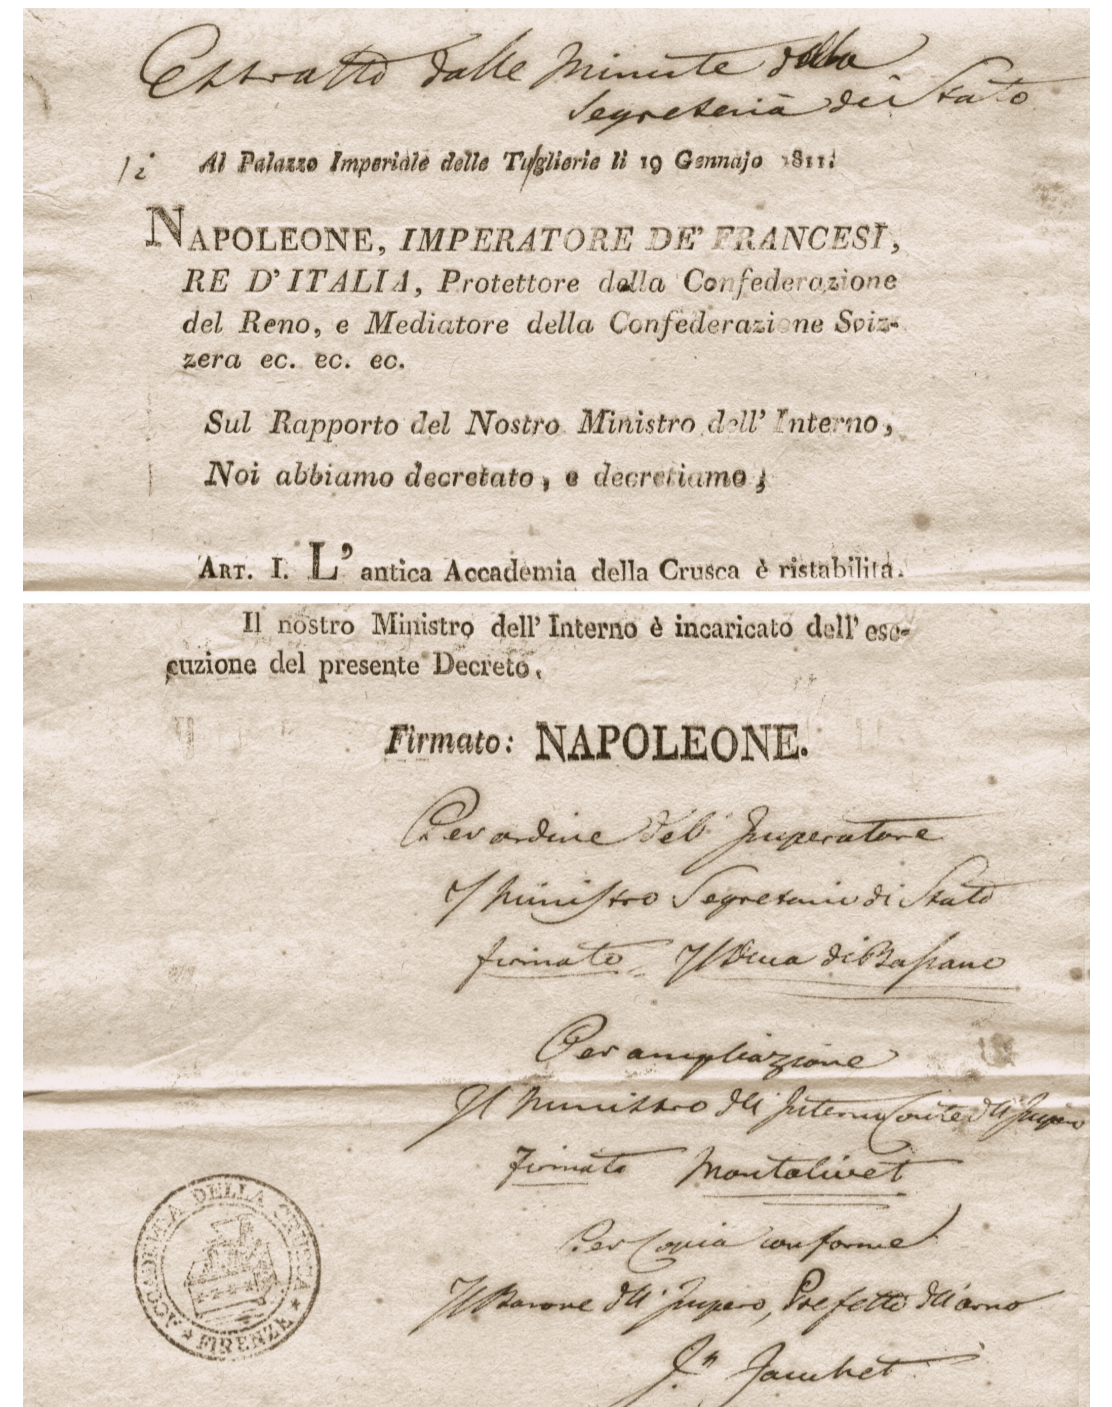 Estratto dalle Minute della
Segreteria di Stato
Al Palazzo Imperiale delle Tuglierie li 19 Gennajo 1811.
NAPOLEONE, IMPERATORE DE' FRANCESI,
RE D'ITALIA, Protettore della Confederazione
del Reno, e Mediatore della Confederazione Sviz-
zera ec. ec. ec.
Sul Rapporto del Nostro Ministro dell' Interno,
Noi abbiamo decretato, e decretiamo;
ART. I. L' antica Accademia della Crusca è ristabilita.
Il nostro Ministro dell' Interno è incaricato dell' ese-
cuzione del presente Decreto.
Firmato: NAPOLEONE.
Per ordine dell' Imperatore
Il Ministro Segretario di Stato
firmato Il Duca di Bassano
Per ampliazione
Il Ministro dell' Interno Conte dell' Impero
Firmato Montalivet
Per Copia conforme
Il Barone dell' Impero, Prefetto dell' Arno
ACCADEMIA DELLA CRUSCA
FIRENZE